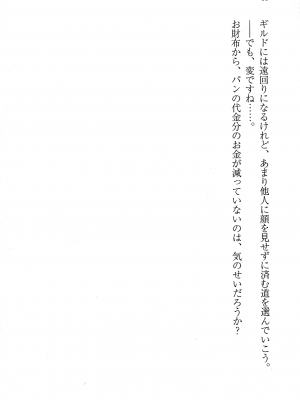 ギルドには遠回りになるけれど、あまり他人に顔を見せずに済む道を選んでいこう。
――でも、変ですね……。
お財布から、パンの代金分のお金が減っていないのは、気のせいだろうか？